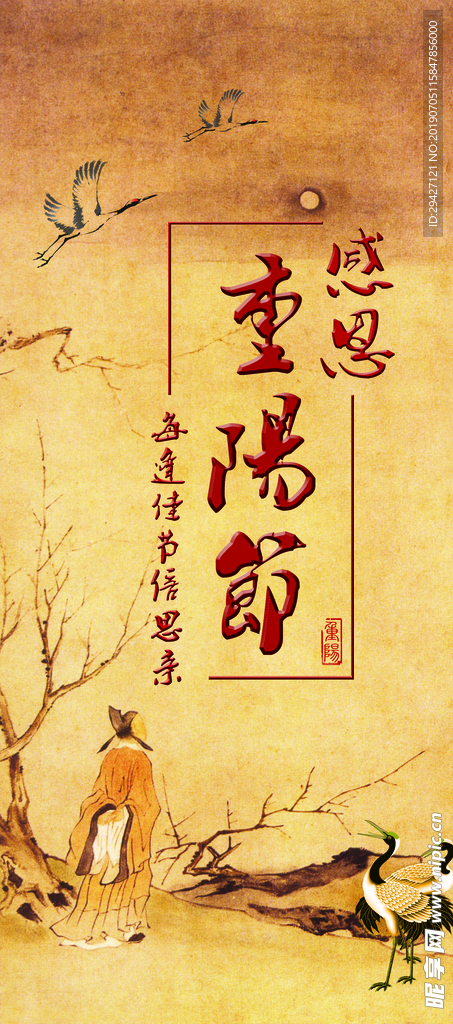 感恩
重陽節
每逢佳节倍思亲
重陽
ID:29427121 NO:20190705115847856000
昵享网 www.nipic.cn